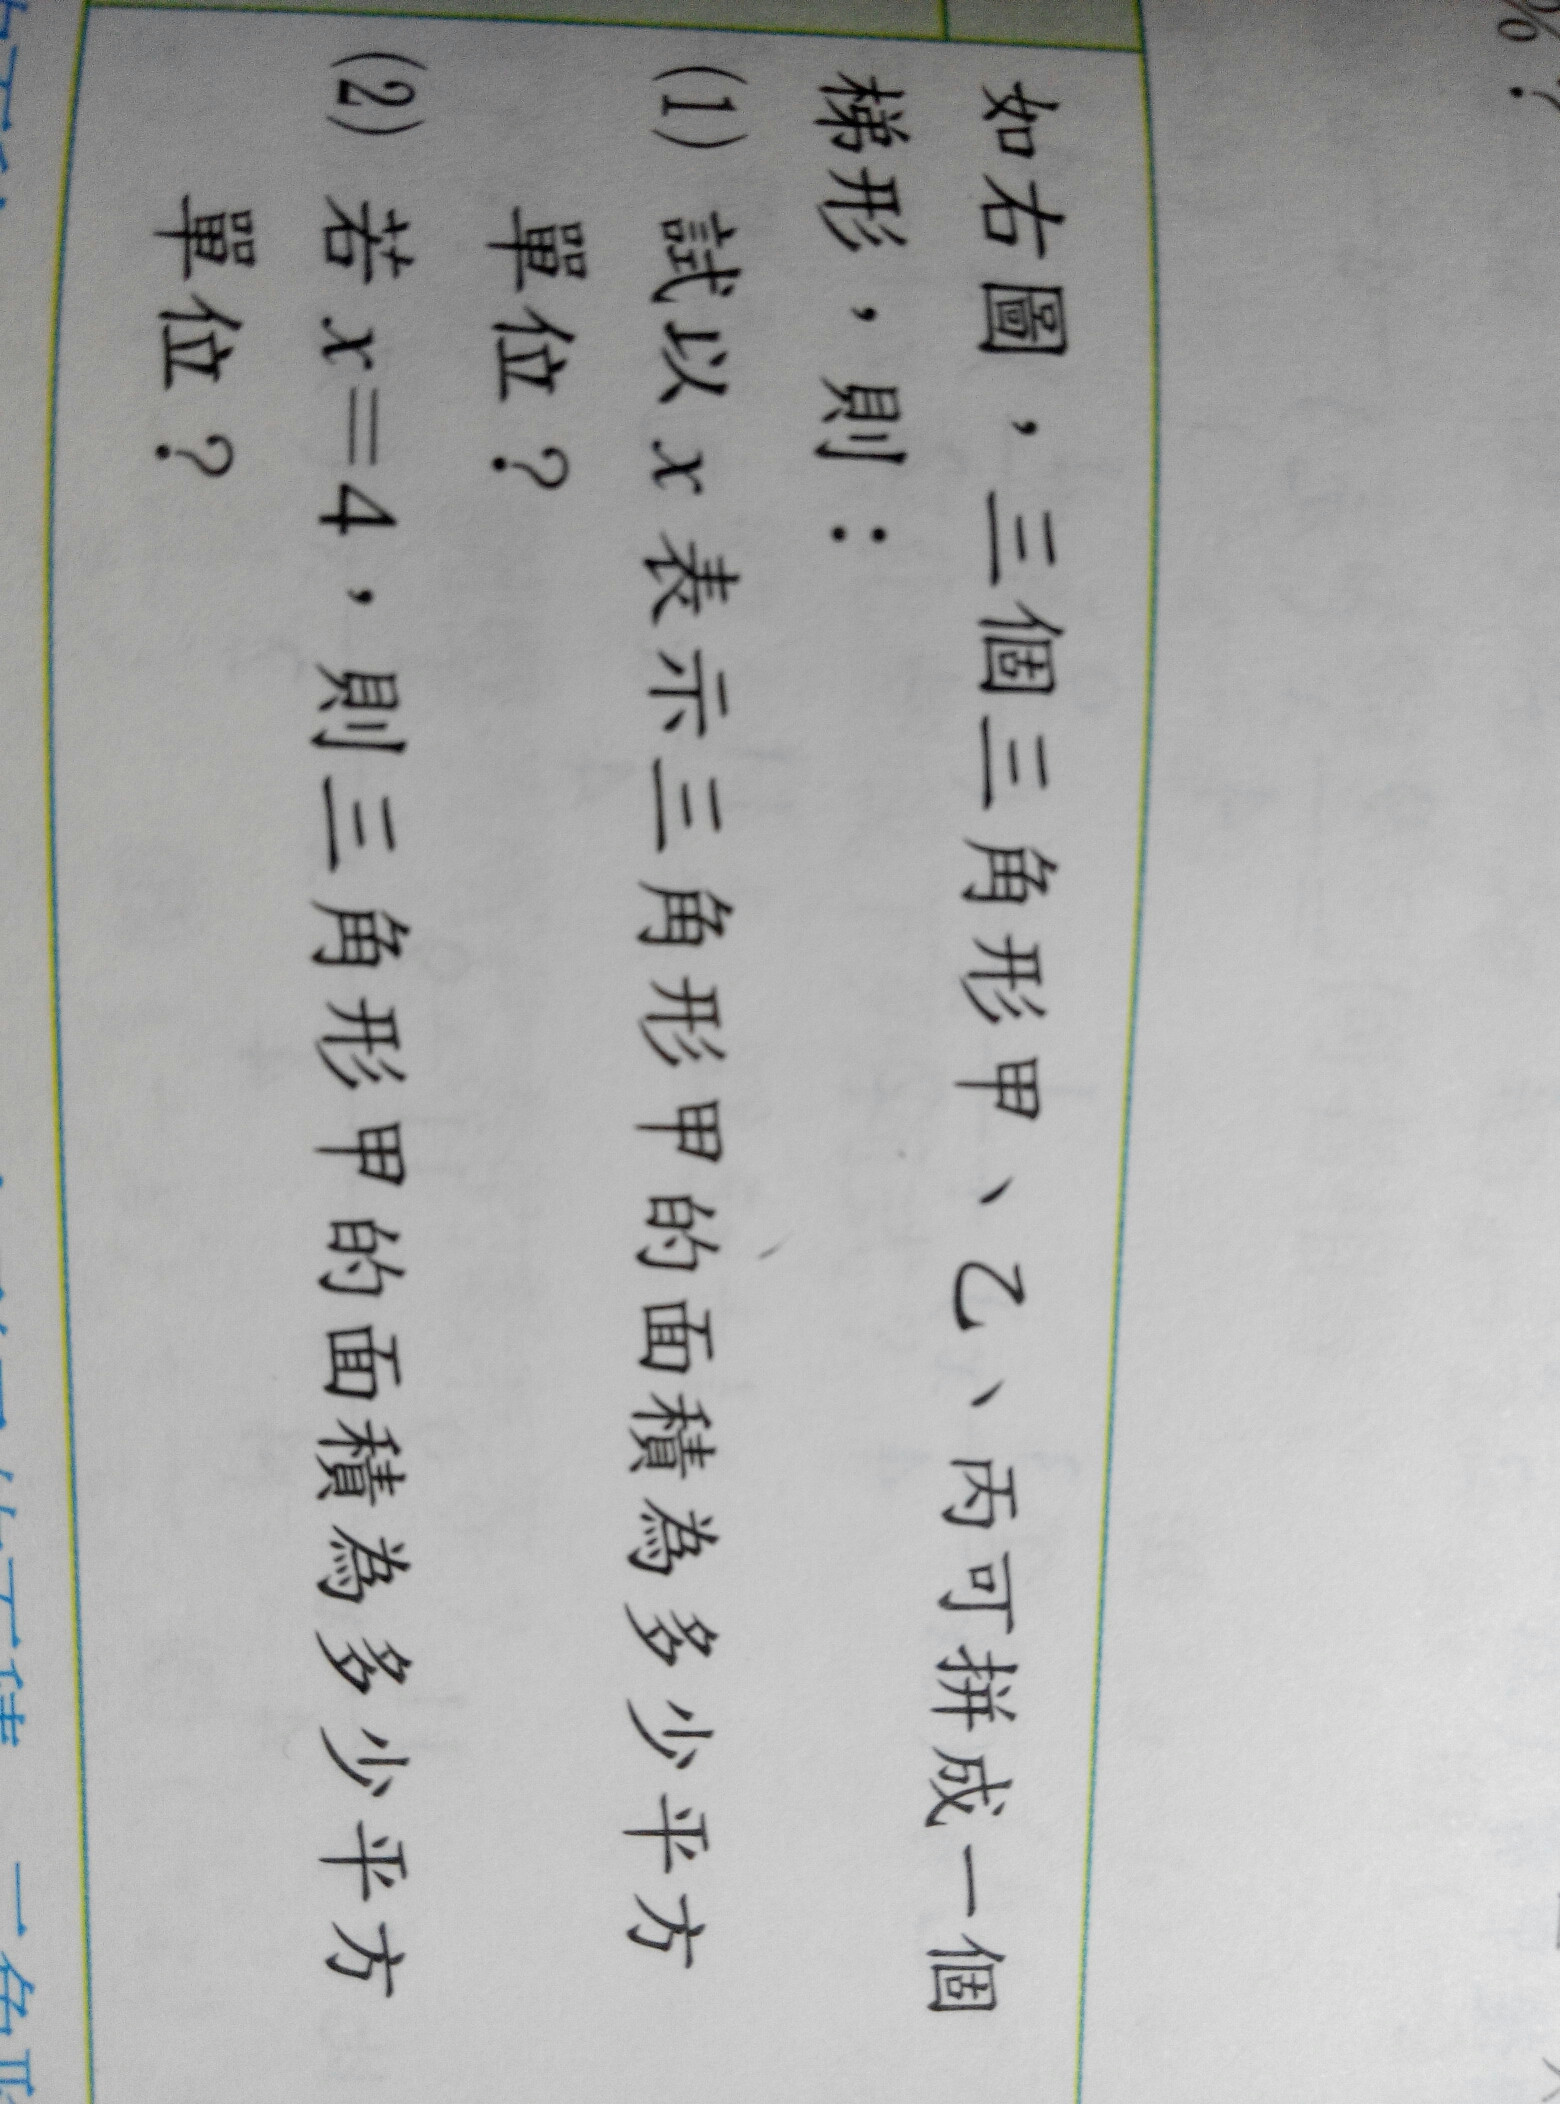 如右圖，三個三角形甲、乙、丙可拼成一個
梯形，則：
(1) 試以 x 表示三角形甲的面積為多少平方
單位？
(2) 若 x=4，則三角形甲的面積為多少平方
單位？